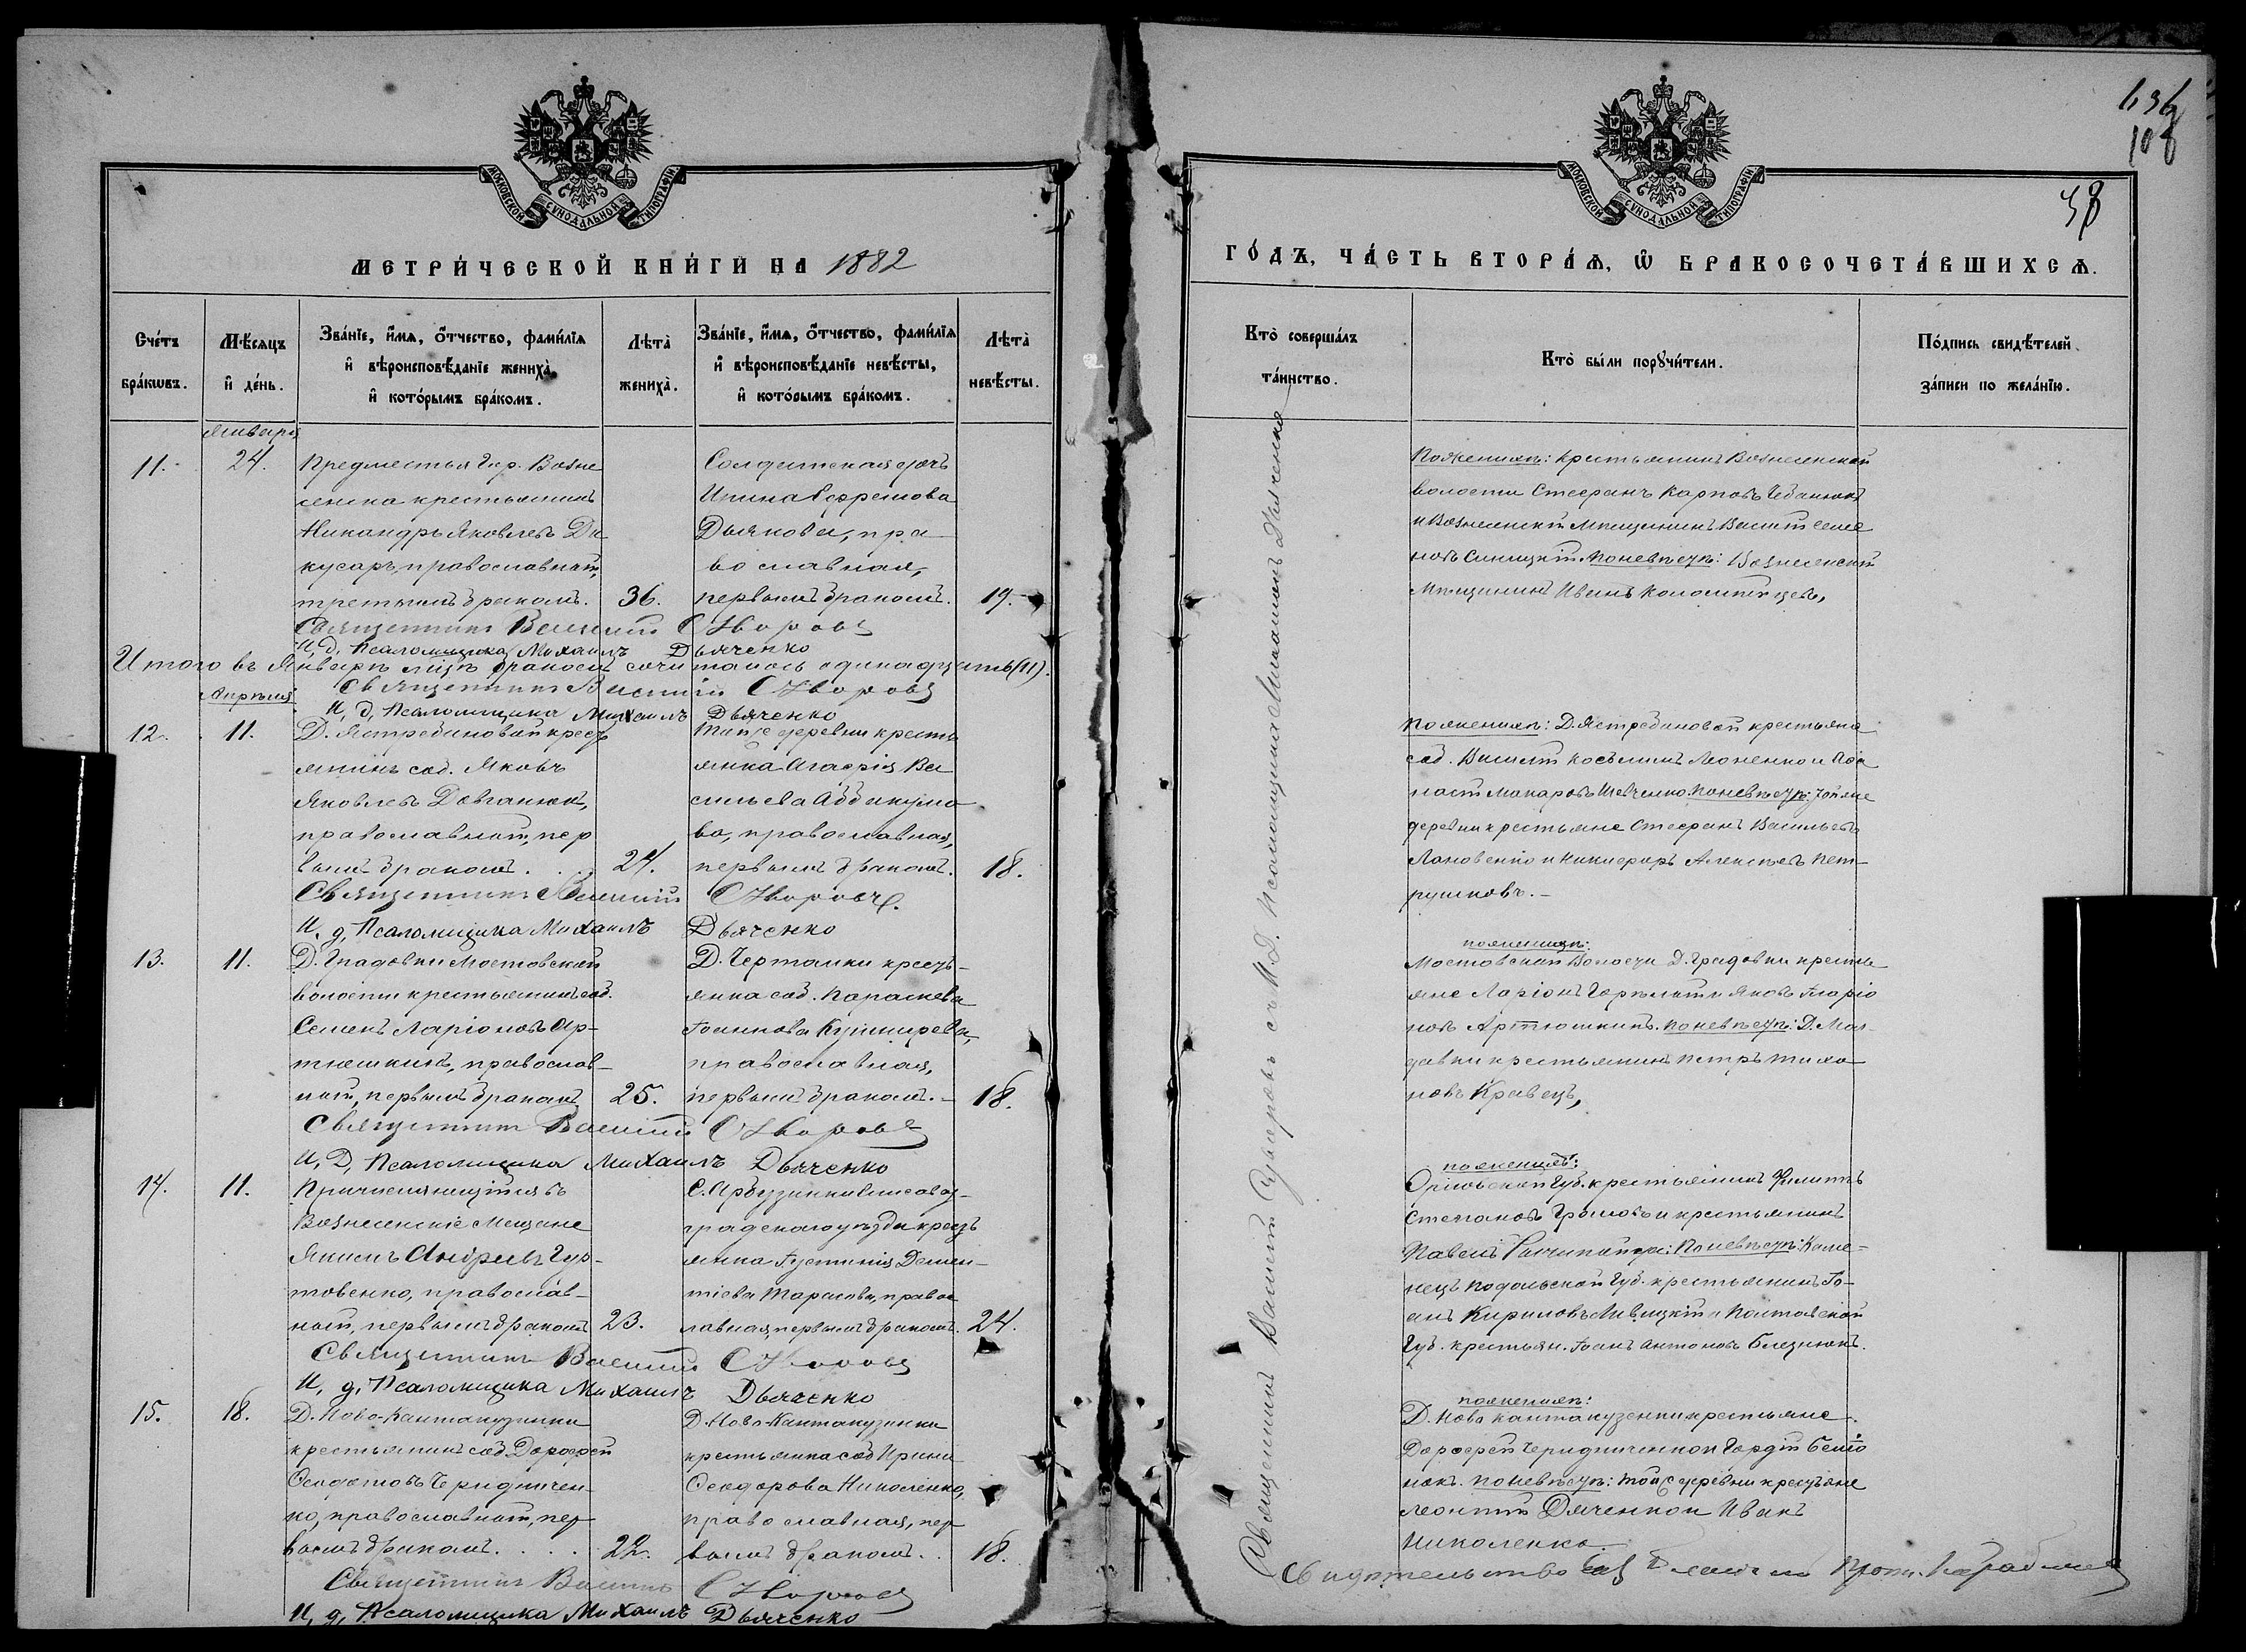 МОСКОВСКОЙ СѴНОДАЛЬНОЙ ТИПОГРАФІИ
МЕТРИ́ЧЕСКОЙ КНИ́ГИ НА 1882
Сче́тъ бра́ковъ.
Мѣ́сяцъ и де́нь.
Зва́нїе, и́мя, о́тчество, фами́лїя и вѣроисповѣ́данїе жениха̀, и кото́рымъ бра́комъ.
Лѣта̀ жениха̀.
Зва́нїе, и́мя, о́тчество, фами́лїя и вѣроисповѣ́данїе невѣ́сты, и кото́рымъ бра́комъ.
Лѣта̀ невѣ́сты.
Января
11.
24.
Предместья Гор. Возне
сенска крестьянинъ
Никандръ Яковлевъ Ди
кусаръ, православный,
третьимъ бракомъ.
36.
Солдатская дочь
Ирина Ефремова
Дьякова, пра
вославная,
первымъ бракомъ.
19.
Священникъ Василий
И, д, Псаломщика Михаилъ Дьяченко
Итого въ Январѣ мѣсяцѣ бракомъ сочиталось одинадцать (11).
Священникъ Василий
И, д, Псаломщика Михаилъ Дьяченко
Апрѣля
12.
11.
Д. Ястребиновой крест
янинъ соб. Яковъ
Яковлевъ Довганюкъ,
православный, пер
вымъ бракомъ.
24.
Тойже деревни кресть
янка Агафія Ва
сильева Аввакумо
ва, православная,
первымъ бракомъ.
18.
Священникъ Василий
И, д, Псаломщика Михаилъ Дьяченко
13.
11.
Д. Градовки Мостовской
волости крестьянинъ соб.
Семенъ Ларіоновъ Ар-
тюшкинъ, православ-
ный, первымъ бракомъ
25.
Д. Черталки кресть-
янка соб. Параскева
Іоаннова Кушнирева,
православная,
первымъ бракомъ.
18.
Священникъ Василий
И, Д, Псаломщика Михаилъ Дьяченко
14.
11.
Причисляющійся въ
Вознесенскіе Мещане
Якимъ Андреевъ Гур-
товенко, православ-
ный, первымъ бракомъ
23.
С. Арбузинки Елисавет-
градскаго уѣзда кресть
янка Іустинія Демен-
тіева Тарасова, правос
лавная, первымъ бракомъ.
24.
Священникъ Василий
И, д, Псаломщика Михаилъ Дьяченко
15.
18.
Д. Ново-Кантакузинки
крестьянинъ соб. Дорофей
Феодотовъ Чередничен-
ко, православный, пер
вымъ бракомъ.
22.
Д. Ново-Кантакузинки
крестьянка соб. Ирина
Феодорова Николенко,
православная, пер
вымъ бракомъ.
18.
Священникъ Василий
И, д, Псаломщика Михаилъ Дьяченко
108
38
МОСКОВСКОЙ СѴНОДАЛЬНОЙ ТИПОГРАФІИ
ГО́ДЪ, ЧА́СТЬ ВТОРА́Я, Ѡ БРАКОСОЧЕТА́ВШИХСЯ.
Кто̀ соверша́лъ та́инство.
Кто̀ бы́ли порꙋчи́тели.
По́дпись свидѣ́телей за́писи по жела́нїю.
Священникъ Василий съ И. Д. Псаломщика Михаиломъ Дьяченко
По женихѣ: крестьянинъ Вознесенской
волости Стефанъ Карповъ Чебанюкъ
и Вознесенскій Мѣщанинъ Василій Семе
новъ Синицкій. По невѣстѣ: Вознесенскій
Мѣщанинъ Иванъ
По женихѣ: Д. Ястребиновой крестьяна
соб. Василій Косьминъ Леоненко и
Макаровъ Шевченко. По невѣстѣ: тойже
деревни крестьяне Стефанъ Васильевъ
Лановенко и Никифоръ Алексѣевъ Пет-
рушковъ.-
По женихѣ:
Мостовской Волости Д. Градовки кресть
яне Ларіонъ и Яковъ Іларіо
новъ Артюшкинъ. По невѣстѣ: Д. Мол
давки крестьянинъ Петръ Тихо
новъ Кравецъ,
По женихѣ:
Орловской Губ. крестьянинъ Филиппъ
Степановъ Громовъ и крестьянинъ
Павелъ По невѣстѣ: Каме-
нецъ Подольской Губ. крестьянинъ Іо-
анъ Кириловъ Левицкій и Полтавской
Губ. крестьян. Іоанъ Антоновъ
По женихѣ:
Д. Ново Кантакузенки крестьяне
Дорофей Чередниченко и Гордій
По невѣстѣ: тойже деревни крестьяне
Леонтій Дяченко и Иванъ
Николенко.
Свидѣтельствовалъ Прот.